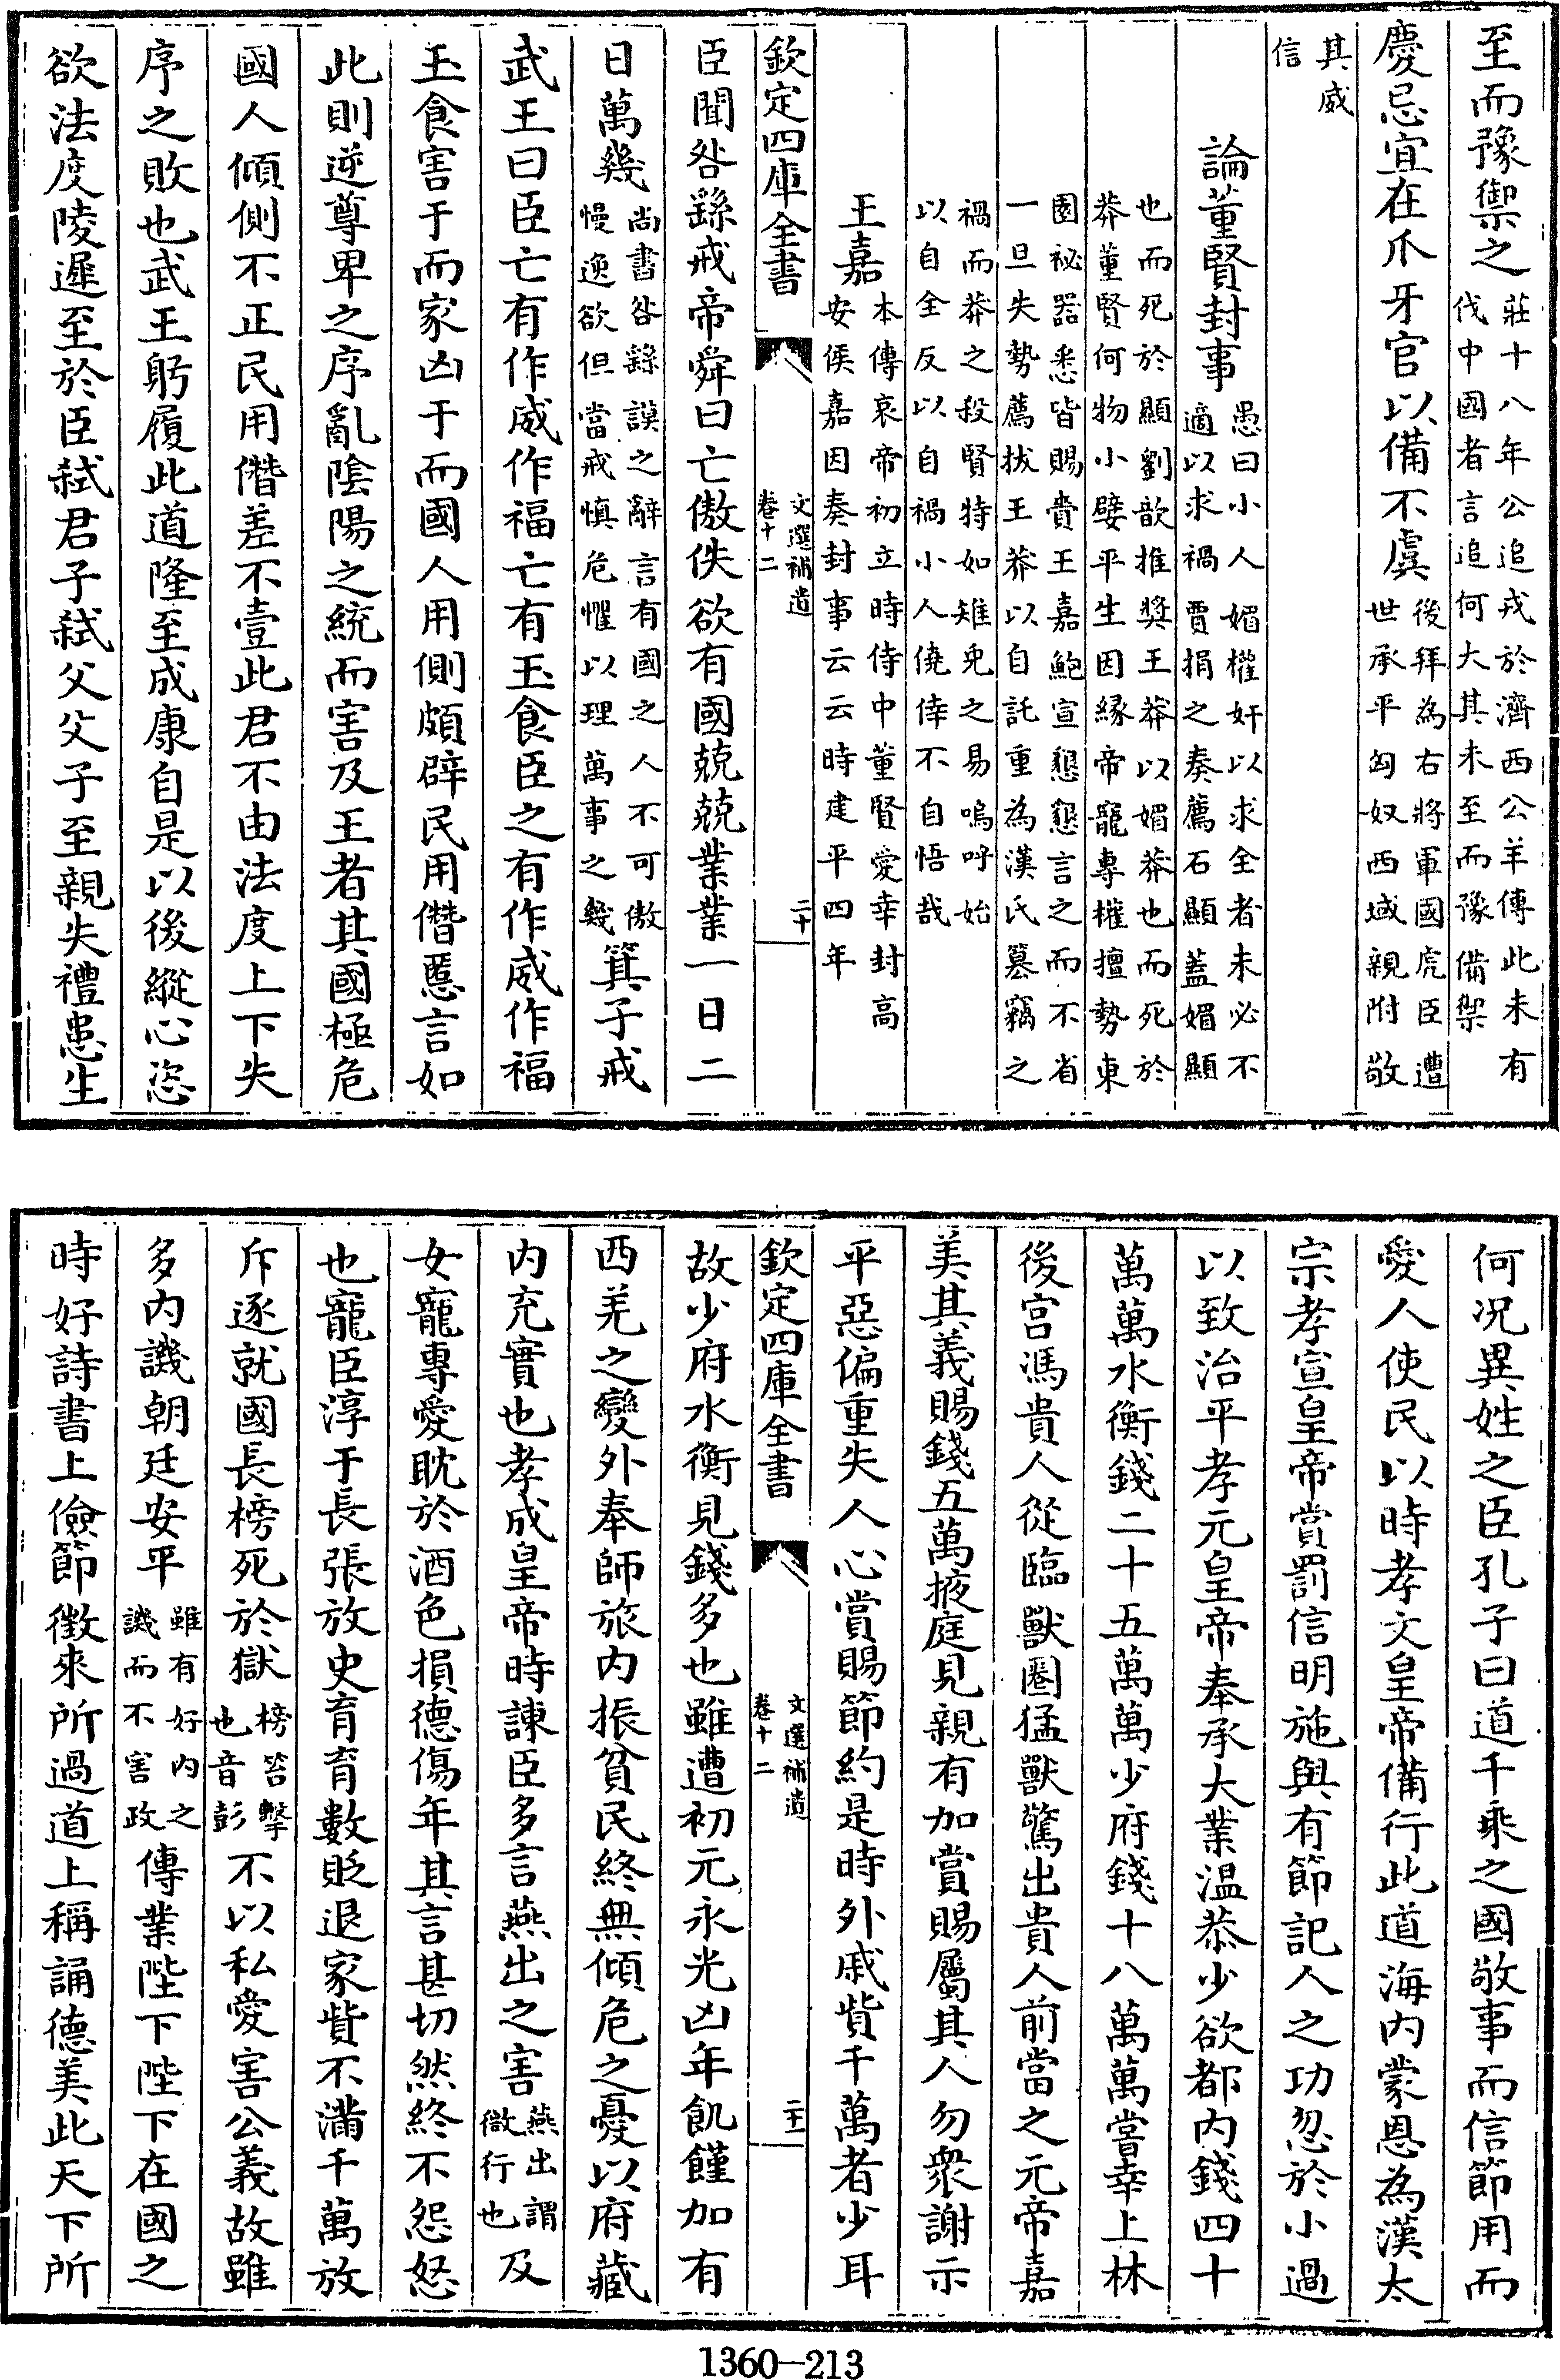 至而豫禦之莊十八年公追戎於濟西公羊傳此未有伐中國者言追何大其未至而豫備禦
慶忌宜在爪牙官以備不虞後拜為右將軍國虎臣遭世承平匈奴西域親附敬
其威信
論董賢封事愚曰小人媚權奸以求全者未必不適以求禍賈捐之奏薦石顯蓋媚顯
也而死於顯劉歆推奬王莽以媚莽也而死於莽董賢何物小嬖平生因緣帝寵專權擅勢東
園祕器悉皆賜賚王嘉鮑宣懇懇言之而不省一旦失勢薦拔王莽以自託重為漢氏簒竊之
禍而莽之殺賢特如雉兎之易嗚呼始以自全反以自禍小人僥倖不自悟哉
王嘉本傳哀帝初立時侍中董賢愛幸封高安侯嘉因奏封事云云時建平四年
欽定四庫全書 文選補遺 卷十二 二十
臣聞咎繇戒帝舜曰亡傲佚欲有國兢兢業業一日二
日萬幾尚書咎繇謨之辭言有國之人不可傲慢逸欲但當戒慎危懼以理萬事之幾箕子戒
武王曰臣亡有作威作福亡有玉食臣之有作威作福
玉食害于而家凶于而國人用側頗辟民用僭慝言如
此則逆尊卑之序亂陰陽之統而害及王者其國極危
國人傾側不正民用僭差不壹此君不由法度上下失
序之敗也武王躬履此道隆至成康自是以後縱心恣
欲法度陵遲至於臣弑君子弑父父子至親失禮患生
何況異姓之臣孔子曰道千乘之國敬事而信節用而
愛人使民以時孝文皇帝備行此道海內蒙恩為漢太
宗孝宣皇帝賞罰信明施與有節記人之功忽於小過
以致治平孝元皇帝奉承大業温恭少欲都內錢四十
萬萬水衡錢二十五萬萬少府錢十八萬萬嘗幸上林
後宮馮貴人從臨獸圈猛獸驚出貴人前當之元帝嘉
美其義賜錢五萬掖庭見親有加賞賜屬其人勿衆謝示
平惡偏重失人心賞賜節約是時外戚貲千萬者少耳
欽定四庫全書 文選補遺 卷十二 二十一
故少府水衡見錢多也雖遭初元永光凶年飢饉加有
西羌之變外奉師旅內振貧民終無傾危之憂以府藏
內充實也孝成皇帝時諫臣多言燕出之害燕出謂微行也及
女寵專愛耽於酒色損德傷年其言甚切然終不怨怒
也寵臣淳于長張放史育育數貶退家貲不滿千萬放
斥逐就國長榜死於獄榜笞擊也音彭不以私愛害公義故雖
多內譏朝廷安平雖有好內之譏而不害政傳業陛下陛下在國之
時好詩書上儉節徵來所過道上稱誦德美此天下所
1360-213